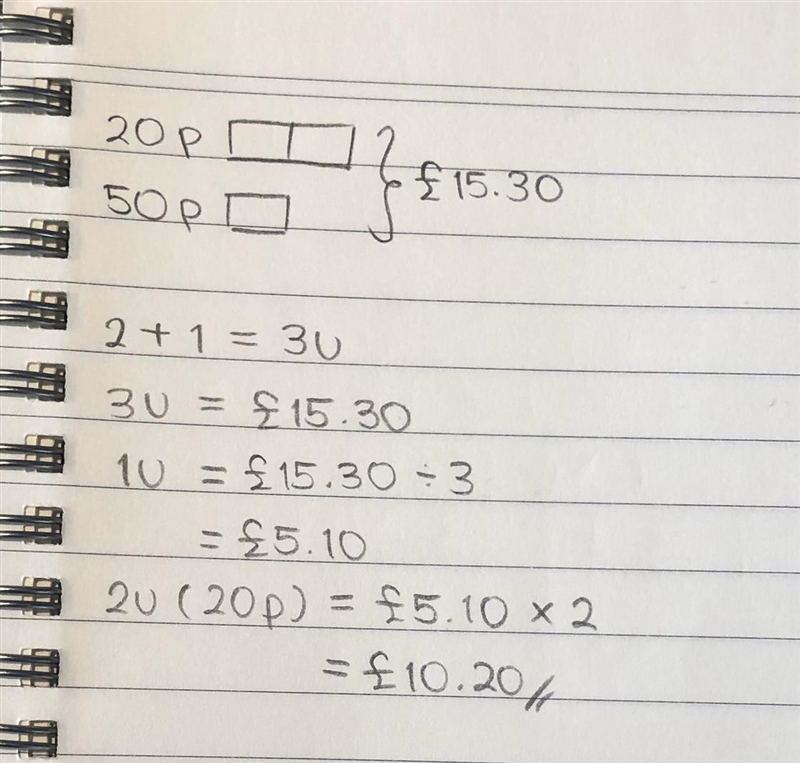 20p
50p
£15.30
2 + 1 = 3U
3U = £15.30
1U = £15.30 ÷ 3
= £5.10
2U (20p) = £5.10 × 2
= £10.20//